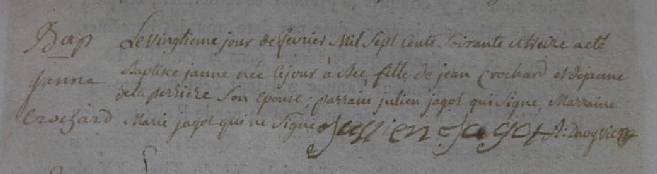 Bap Le vingtieme jour de fevrier Mil Sept Cents Soixante et treize a eté
janne Baptisée janne née le jour d'hier fille de jean Crochard et de janne
Crochard de la perriere Son epouse; parrain julien jagot qui Signe, Marraine
Marie jagot qui ne Signe julien jagot